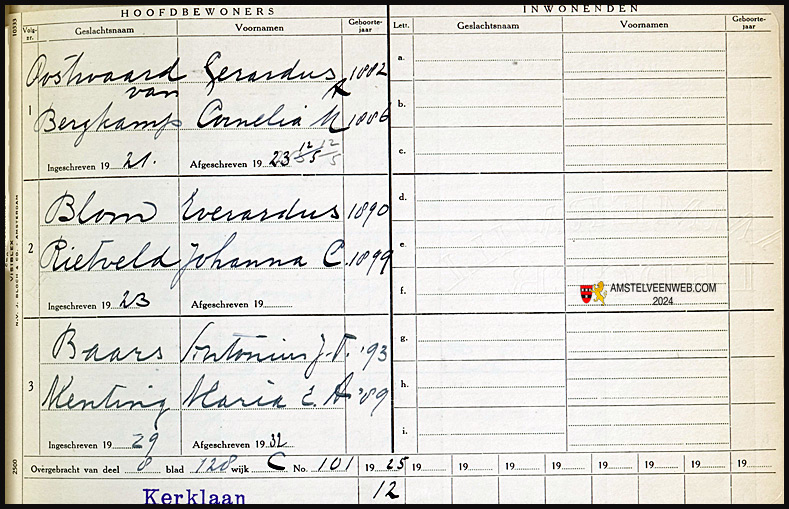 HOOFDBEWONERS
INWONENDEN
Volg-nr.
Geslachtsnaam
Voornamen
Geboorte-jaar
Lett.
Geslachtsnaam
Voornamen
Geboorte-jaar
1
Oostwaard van Gerardus A 1882
Bergkamp Cornelia M 1886
Ingeschreven 19 21. Afgeschreven 19 23 12/5 12/5
a.
b.
c.
2
Blom Everardus 1890
Rietveld Johanna C. 1899
Ingeschreven 19 23 Afgeschreven 19
d.
e.
f.
AMSTELVEENWEB.COM
2024
3
Baars Antonius J. '93
Menting Maria E. A '89
Ingeschreven 19 29 Afgeschreven 19 32
g.
h.
i.
Overgebracht van deel 8 blad 128 wijk C No. 101 19 25 19 19 19 19 19 19 19 19
Kerklaan
12
10333
2500
N.V. J. BLOCH & CO. AMSTERDAM
VISIBLEX